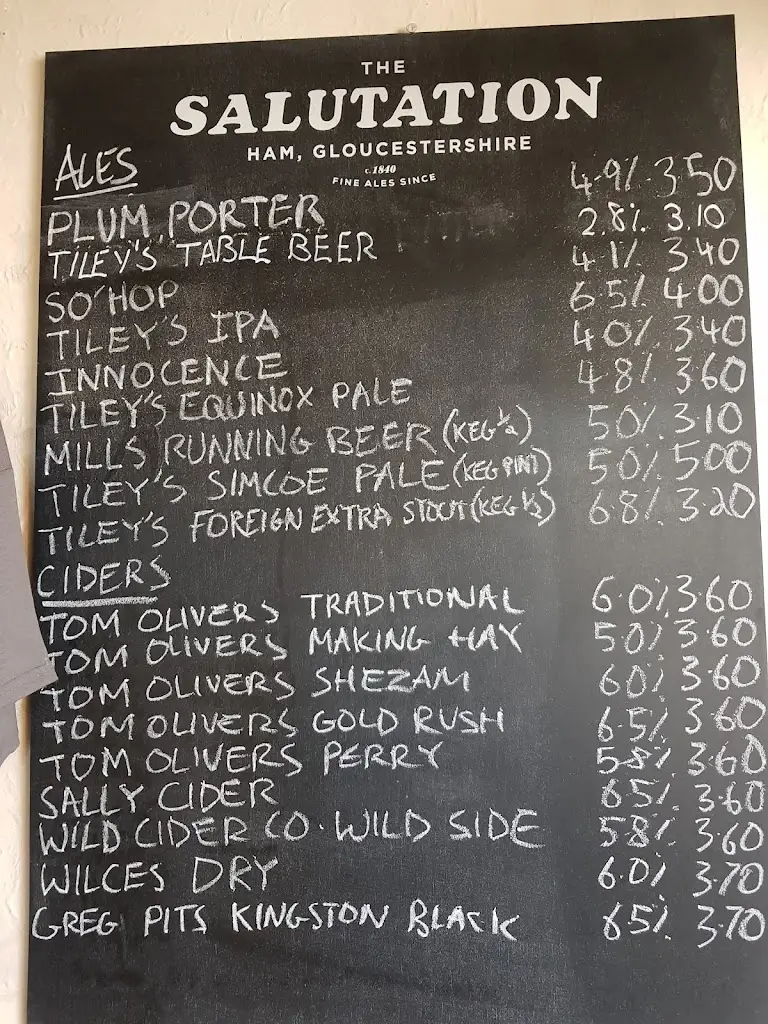 THE
SALUTATION
HAM, GLOUCESTERSHIRE
c.1840
FINE ALES SINCE
ALES
PLUM PORTER 4.9% 3.50
TILEY'S TABLE BEER 2.8% 3.10
SO'HOP 4.1% 3.40
TILEY'S IPA 6.5% 4.00
INNOCENCE 4.0% 3.40
TILEY'S EQUINOX PALE 4.8% 3.60
MILLS RUNNING BEER (KEG ½) 5.0% 3.10
TILEY'S SIMCOE PALE (KEG PINT) 5.0% 5.00
TILEY'S FOREIGN EXTRA STOUT (KEG ⅓) 6.8% 3.20
CIDERS
TOM OLIVERS TRADITIONAL 6.0% 3.60
TOM OLIVERS MAKING HAY 5.0% 3.60
TOM OLIVERS SHEZAM 6.0% 3.60
TOM OLIVERS GOLD RUSH 6.5% 3.60
TOM OLIVERS PERRY 5.8% 3.60
SALLY CIDER 6.5% 3.60
WILD CIDER CO. WILD SIDE 5.8% 3.60
WILCES DRY 6.0% 3.70
GREG PITS KINGSTON BLACK 6.5% 3.70